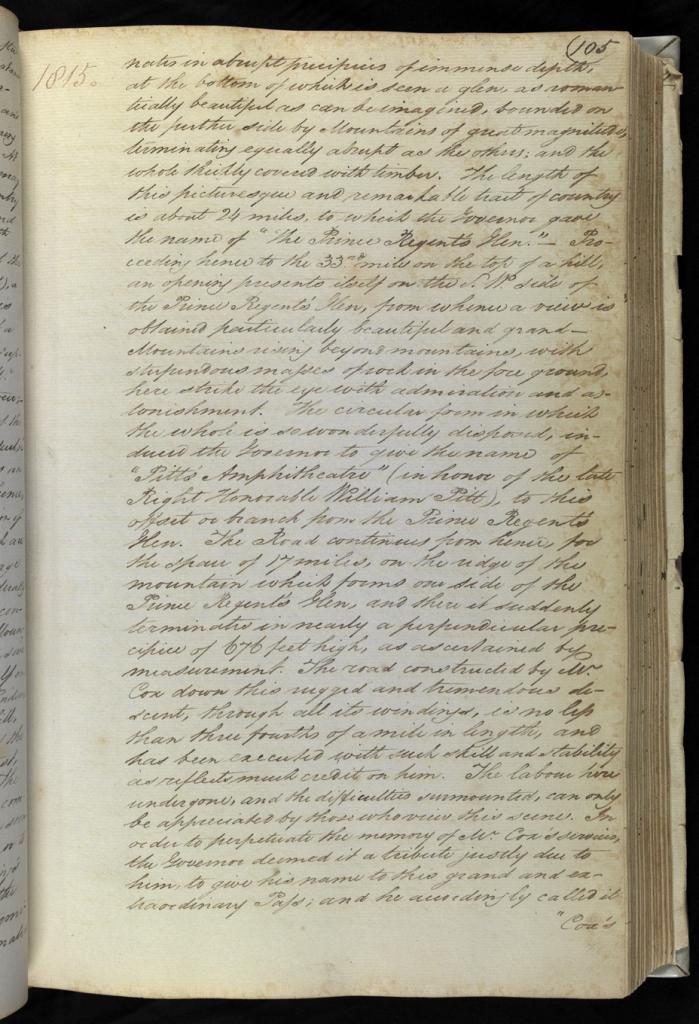 105
1815.
nates in abrupt precipices of immense depth,
at the bottom of which is seen a glen, as roman-
tically beautiful as can be imagined, bounded on
the further side by Mountains of great magnitude,
terminating equally abrupt as the others; and the
whole thickly covered with timber. The length of
this picturesque and remarkable tract of country
is about 24 miles, to which the Governor gave
the name of "The Prince Regent's Glen." — Pro-
ceeding hence to the 33rd mile on the top of a hill,
an opening presents itself on the S. W. side of
the Prince Regent's Glen, from whence a view is
obtained particularly beautiful and grand —
Mountains rising beyond mountains, with
stupendous masses of rock in the fore ground,
here strike the eye with admiration and as-
tonishment. The circular form in which
the whole is so wonderfully disposed, in-
duced the Governor to give the name of
"Pitt's Amphitheatre" (in honor of the late
Right Honorable William Pitt), to this
offset or branch from the Prince Regent's
Glen. The Road continues from hence, for
the space of 17 miles, on the ridge of the
mountain which forms one side of the
Prince Regent's Glen, and there it suddenly
terminates in nearly a perpendicular pre-
cipice of 676 feet high, as ascertained by
measurement. The road constructed by Mr.
Cox down this rugged and tremendous de-
scent, through all its windings, is no less
than three fourths of a mile in length, and
has been executed with such skill and stability
as reflects much credit on him. The labour here
undergone, and the difficulties surmounted, can only
be appreciated by those who view this scene. In
order to perpetuate the memory of Mr. Cox's services,
the Governor deemed it a tribute justly due to
him, to give his name to this grand and ex-
traordinary Pass; and he accordingly called it
"Cox's